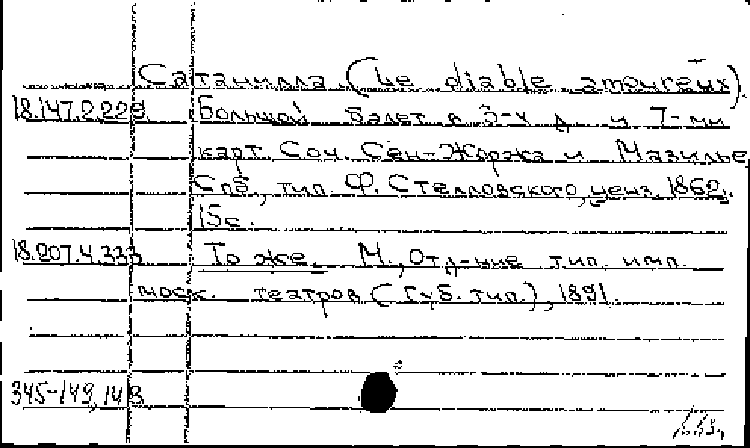 Сатанилла (Le diable amoureux).
18.147.2.229 Большой балет в 3-х д. и 7-ми
карт. Соч. Сен-Жоржа и Мазилье
Спб., тип. Ф. Стелловского, ценз. 1862.
15с.
18.207.4.333 То же. М., Отд-ние тип. имп.
моск. театров (Губ. тип.), 1891.
345-149, 148